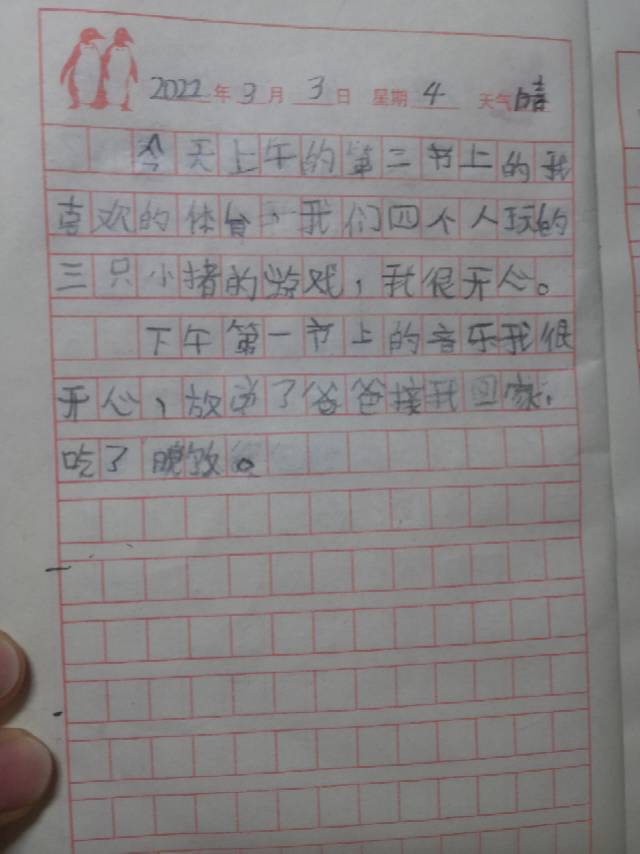 2022年3月3日 星期4 天气晴
今天上午的第三节上的我
喜欢的体育，我们四个人玩的
三只小猪的游戏，我很开心。
下午第一节上的音乐我很
开心，放学了爸爸接我回家，
吃了晚饭。